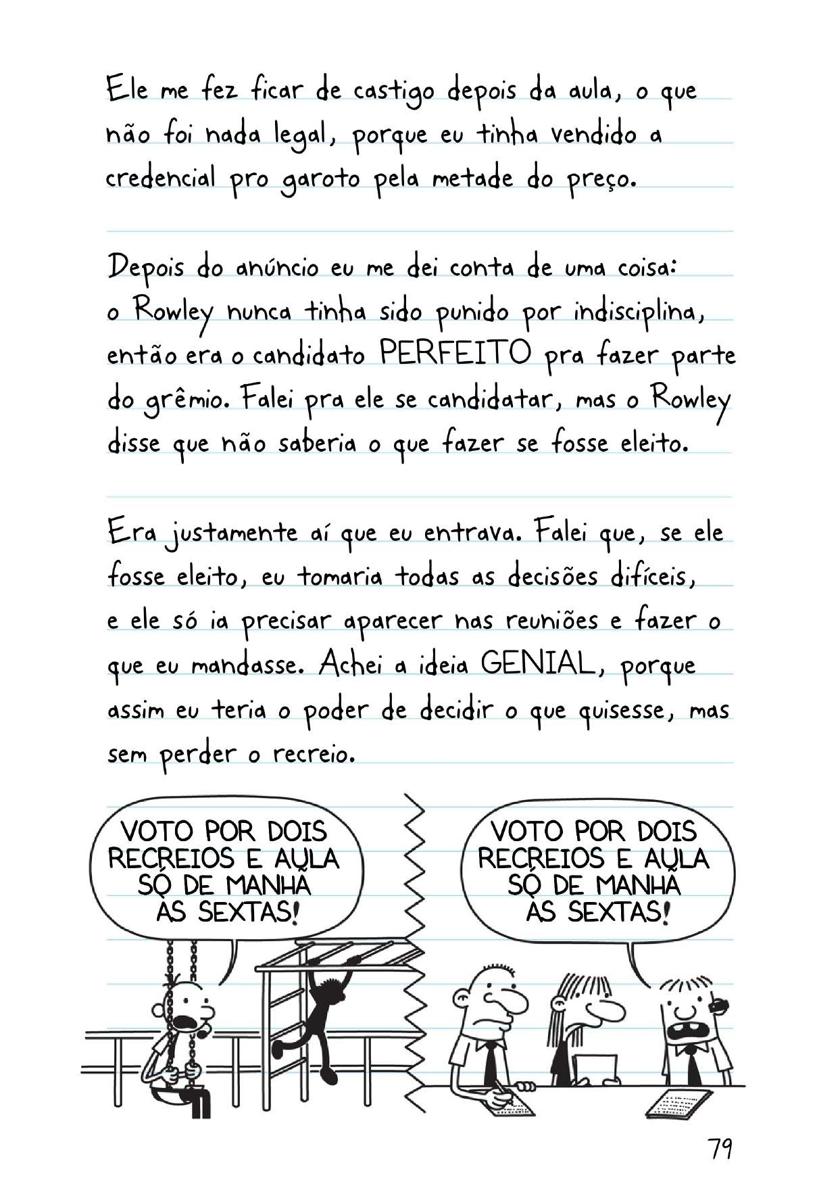 Ele me fez ficar de castigo depois da aula, o que
não foi nada legal, porque eu tinha vendido a
credencial pro garoto pela metade do preço.
Depois do anúncio eu me dei conta de uma coisa:
o Rowley nunca tinha sido punido por indisciplina,
então era o candidato PERFEITO pra fazer parte
do grêmio. Falei pra ele se candidatar, mas o Rowley
disse que não saberia o que fazer se fosse eleito.
Era justamente aí que eu entrava. Falei que, se ele
fosse eleito, eu tomaria todas as decisões difíceis,
e ele só ia precisar aparecer nas reuniões e fazer o
que eu mandasse. Achei a ideia GENIAL, porque
assim eu teria o poder de decidir o que quisesse, mas
sem perder o recreio.
VOTO POR DOIS
RECREIOS E AULA
SÓ DE MANHÃ
ÀS SEXTAS!
VOTO POR DOIS
RECREIOS E AULA
SÓ DE MANHÃ
ÀS SEXTAS!
79